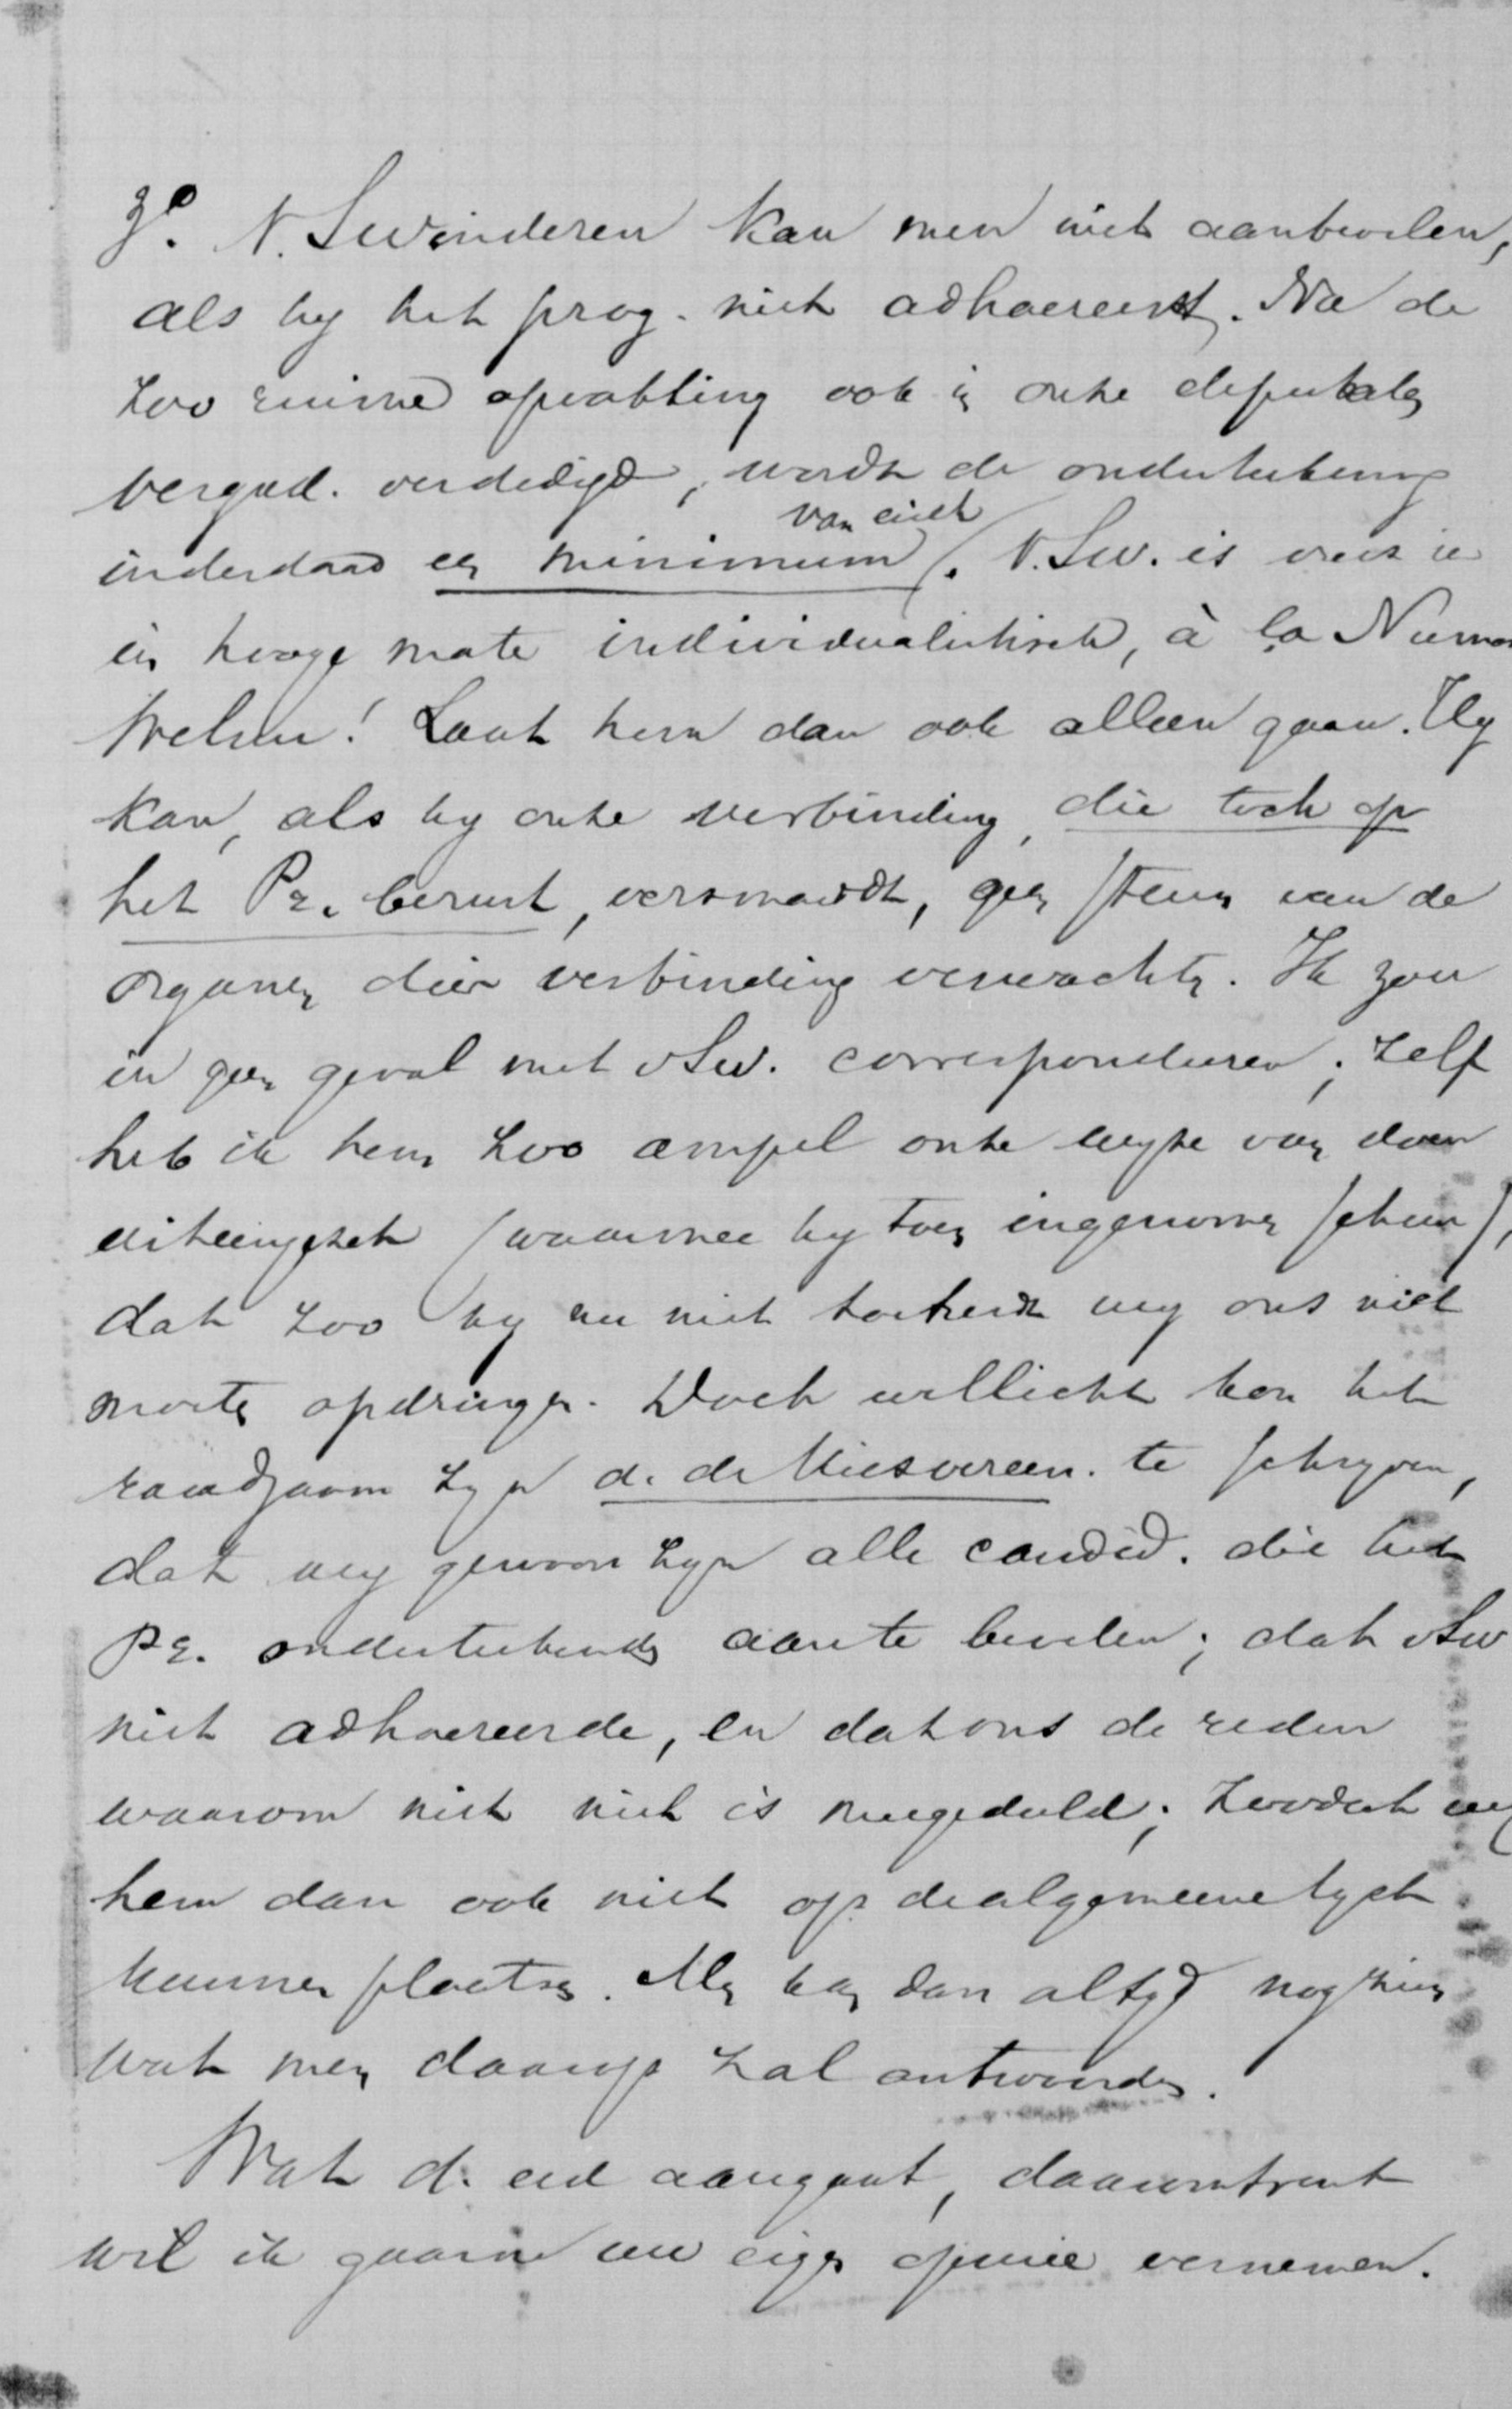 3°. V. Swinderen kan men niet aanbevelen,
als hy het prog. niet adhaereert. Na de
zoo ruime opvatting ook in onze deputaten
vergad. verdedigd, wordt de onderteekening
van eisch
inderdaad een minimum. V. Sw. is vrees ik
in hooge mate individualistisch, à la Numan
Laat hem dan ook alleen gaan. Hy
kan, als hy onze verbinding, die toch op
het Pr. berust, versmaadt, geen steun van de
organen dier verbinding verwachten. Ik zou
in geen geval met vSw. correspondeeren; zelf
heb ik hem zoo ampel onze wyze van doen
uiteengezet (waarmee hy toen ingenomen scheen),
dat zoo hy nu niet toetreedt wy ons niet
moeten opdringen. Doch wellicht kon het
raadzaam zyn d. de Kiesvereen. te schryven,
dat wy gewoon zyn alle candid. die het
Pr. onderteekenden aan te bevelen; dat vSw
niet adhaereerde, en dat ons de reden
waarom niet niet is meegedeeld; zoodat wy
hem dan ook niet op de algemeene lyst
kunnen plaatsen. Men kan dan altyd nog zien
wat men daarop zal antwoorden.
Wat d. eed aangaat, daaromtrent
wil ik gaarne uw eigen opinie vernemen.